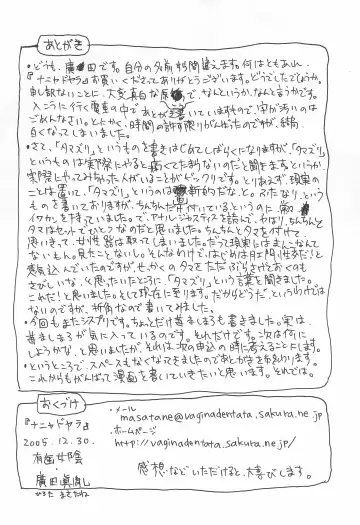 あとがき
・どうも、廣田です。自分の名前も間違えます。何はともあれ、
『ナニャドヤラ』お買いくださってありがとうございます。どうでしたでしょうか。
申し訳ないことに、大変真白な で、なんというか、なんと言うかです。
入こうに行く電車の中であとがき書いていますもので、字が汚いのは
ごめんなさい。とにかく、時間の許す限りがんばったのですが、結局
白くなってしまいました。
・さて、「タマズリ」というものを書きはじめてしばらくになりますが、「タマズリ」
というものは実際にやると痛くてたまらないのだと聞きます。というか
実際にやってみちゃった人がいることがビックリです。とりあえず現実の
ことは置いて、「タマズリ」というのは 新的だなと。ふたなり、という
ものを書いておりますが、ちんちんだけ付いているというのに、常
イワカンを持っていました。で、アナルジャスティスを読んで、やはり、ちんちんと
タマはセットでひとつなのだと思いました。ちんちんとタマを付けて、
思いきって、女性器は取ってしまいました。だって現実にはまんこなんて
ないもん。見たことないし。そんなわけで、はじめは肛門性交だ！と
意気込んでいたのですが、せっかくのタマをただぶらさげておくのも
さびしいな、と思ったいたところに、「タマズリ」という言葉を聞きました。
これだ！と思いました。そして現在に至ります。だからどうだ、というわけでは
ないのですが、折角なので書いてみました。
・今回もまたスプリです。ちんとだけ首まえしまも書きました。実は、
首まえしまが気に入っているのです。それだけです。次は何に
しようかな、と思いましたが、それは次の申込の時に考えることにします。
・というところで、スペースもなくなってきましたのであとがきを終わります。
これからもがんばって漫画を書いていきたいと思います。それでは。
おくづけ
『ナニャドヤラ』
2005.12.30.
有歯女陰
・
廣田眞胤
ひろた まさたね
・メール
masatane@vaginadentata.sakura.ne.jp
・ホームページ
http://vaginadentata.sakura.ne.jp/
感想などいただけると、大喜びします。